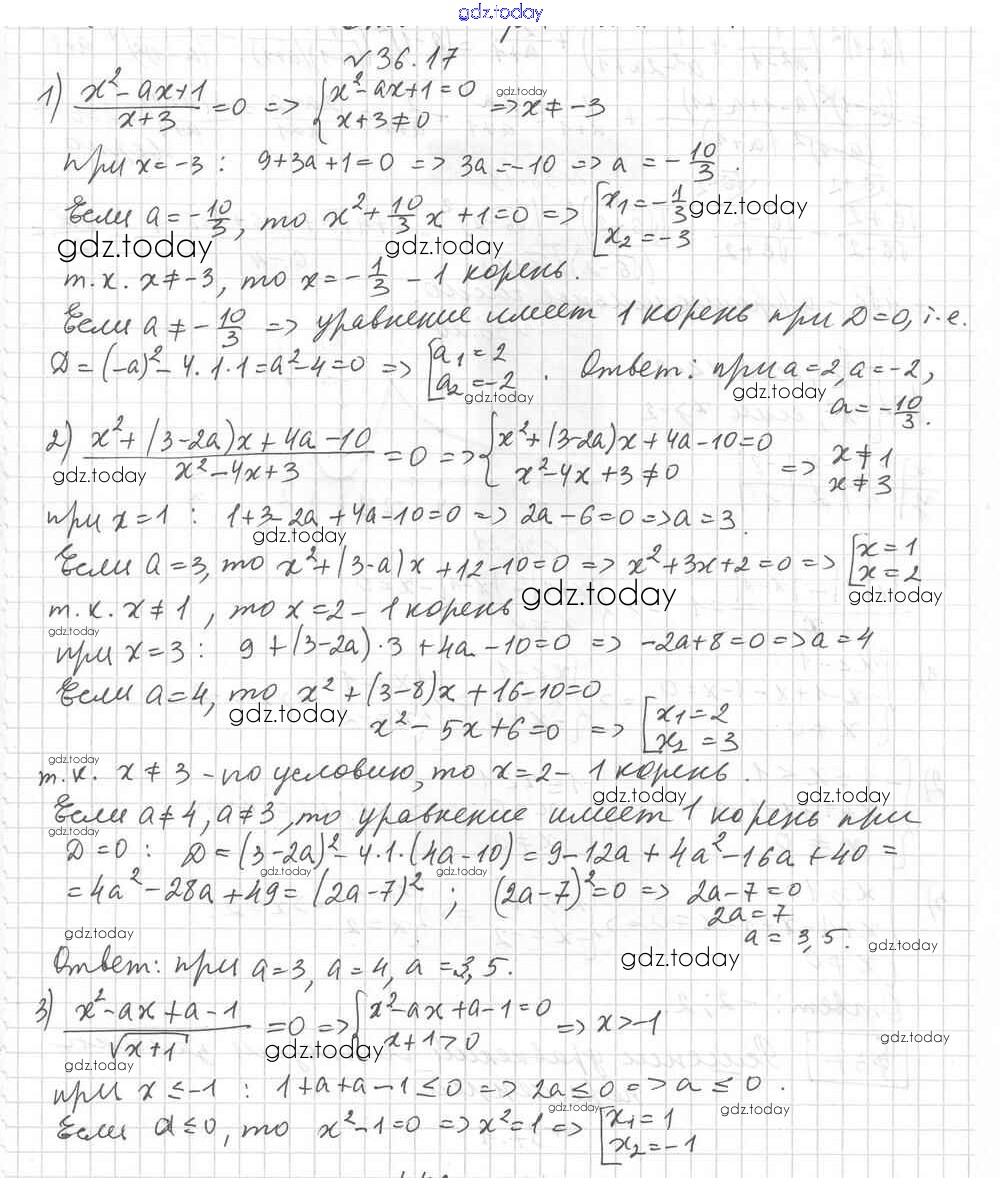 gdz.today
№36.17
1) (x²-ax+1)/(x+3) =0 => { x²-ax+1=0 x+3≠0 gdz.today => x≠-3
при x=-3 : 9+3a+1=0 => 3a=-10 => a=-10/3.
Если a=-10/3, то x²+10/3x+1=0 => [ x₁=-1/3 x₂=-3 gdz.today
gdz.today gdz.today
т.к. x≠-3, то x=-1/3 - 1 корень.
Если a≠-10/3 => уравнение имеет 1 корень при D=0, т.е.
D=(-a)²-4·1·1=a²-4=0 => [ a₁=2 a₂=-2 . Ответ: при a=2, a=-2,
gdz.today gdz.today a=-10/3.
2) (x²+(3-2a)x+4a-10)/(x²-4x+3) =0 => { x²+(3-2a)x+4a-10=0 x²-4x+3≠0 => x≠1 x≠3
gdz.today
при x=1 : 1+3-2a+4a-10=0 => 2a-6=0 => a=3.
gdz.today
Если a=3, то x²+(3-a)x+12-10=0 => x²+3x+2=0 => [ x=1 x=2
т.к. x≠1, то x=2 - 1 корень gdz.today gdz.today
gdz.today
при x=3 : 9+(3-2a)·3+4a-10=0 => -2a+8=0 => a=4
Если a=4, то x²+(3-8)x+16-10=0
gdz.today x²-5x+6=0 => [ x₁=2 x₂=3
gdz.today
т.к. x≠3 - по условию, то x=2 - 1 корень.
gdz.today gdz.today
Если a≠4, a≠3, то уравнение имеет 1 корень при
gdz.today
D=0 : D=(3-2a)²-4·1·(4a-10)=9-12a+4a²-16a+40=
gdz.today gdz.today
=4a²-28a+49=(2a-7)² ; (2a-7)²=0 => 2a-7=0
2a=7
gdz.today a=3,5. gdz.today
gdz.today
Ответ: при a=3, a=4, a=3,5.
3) (x²-ax+a-1)/√(x+1) =0 => { x²-ax+a-1=0 x+1>0 => x>-1
gdz.today gdz.today gdz.today
при x≤-1 : 1+a+a-1≤0 => 2a≤0 => a≤0.
gdz.today gdz.today
Если a≤0, то x²-1=0 => x²=1 => [ x₁=1 x₂=-1